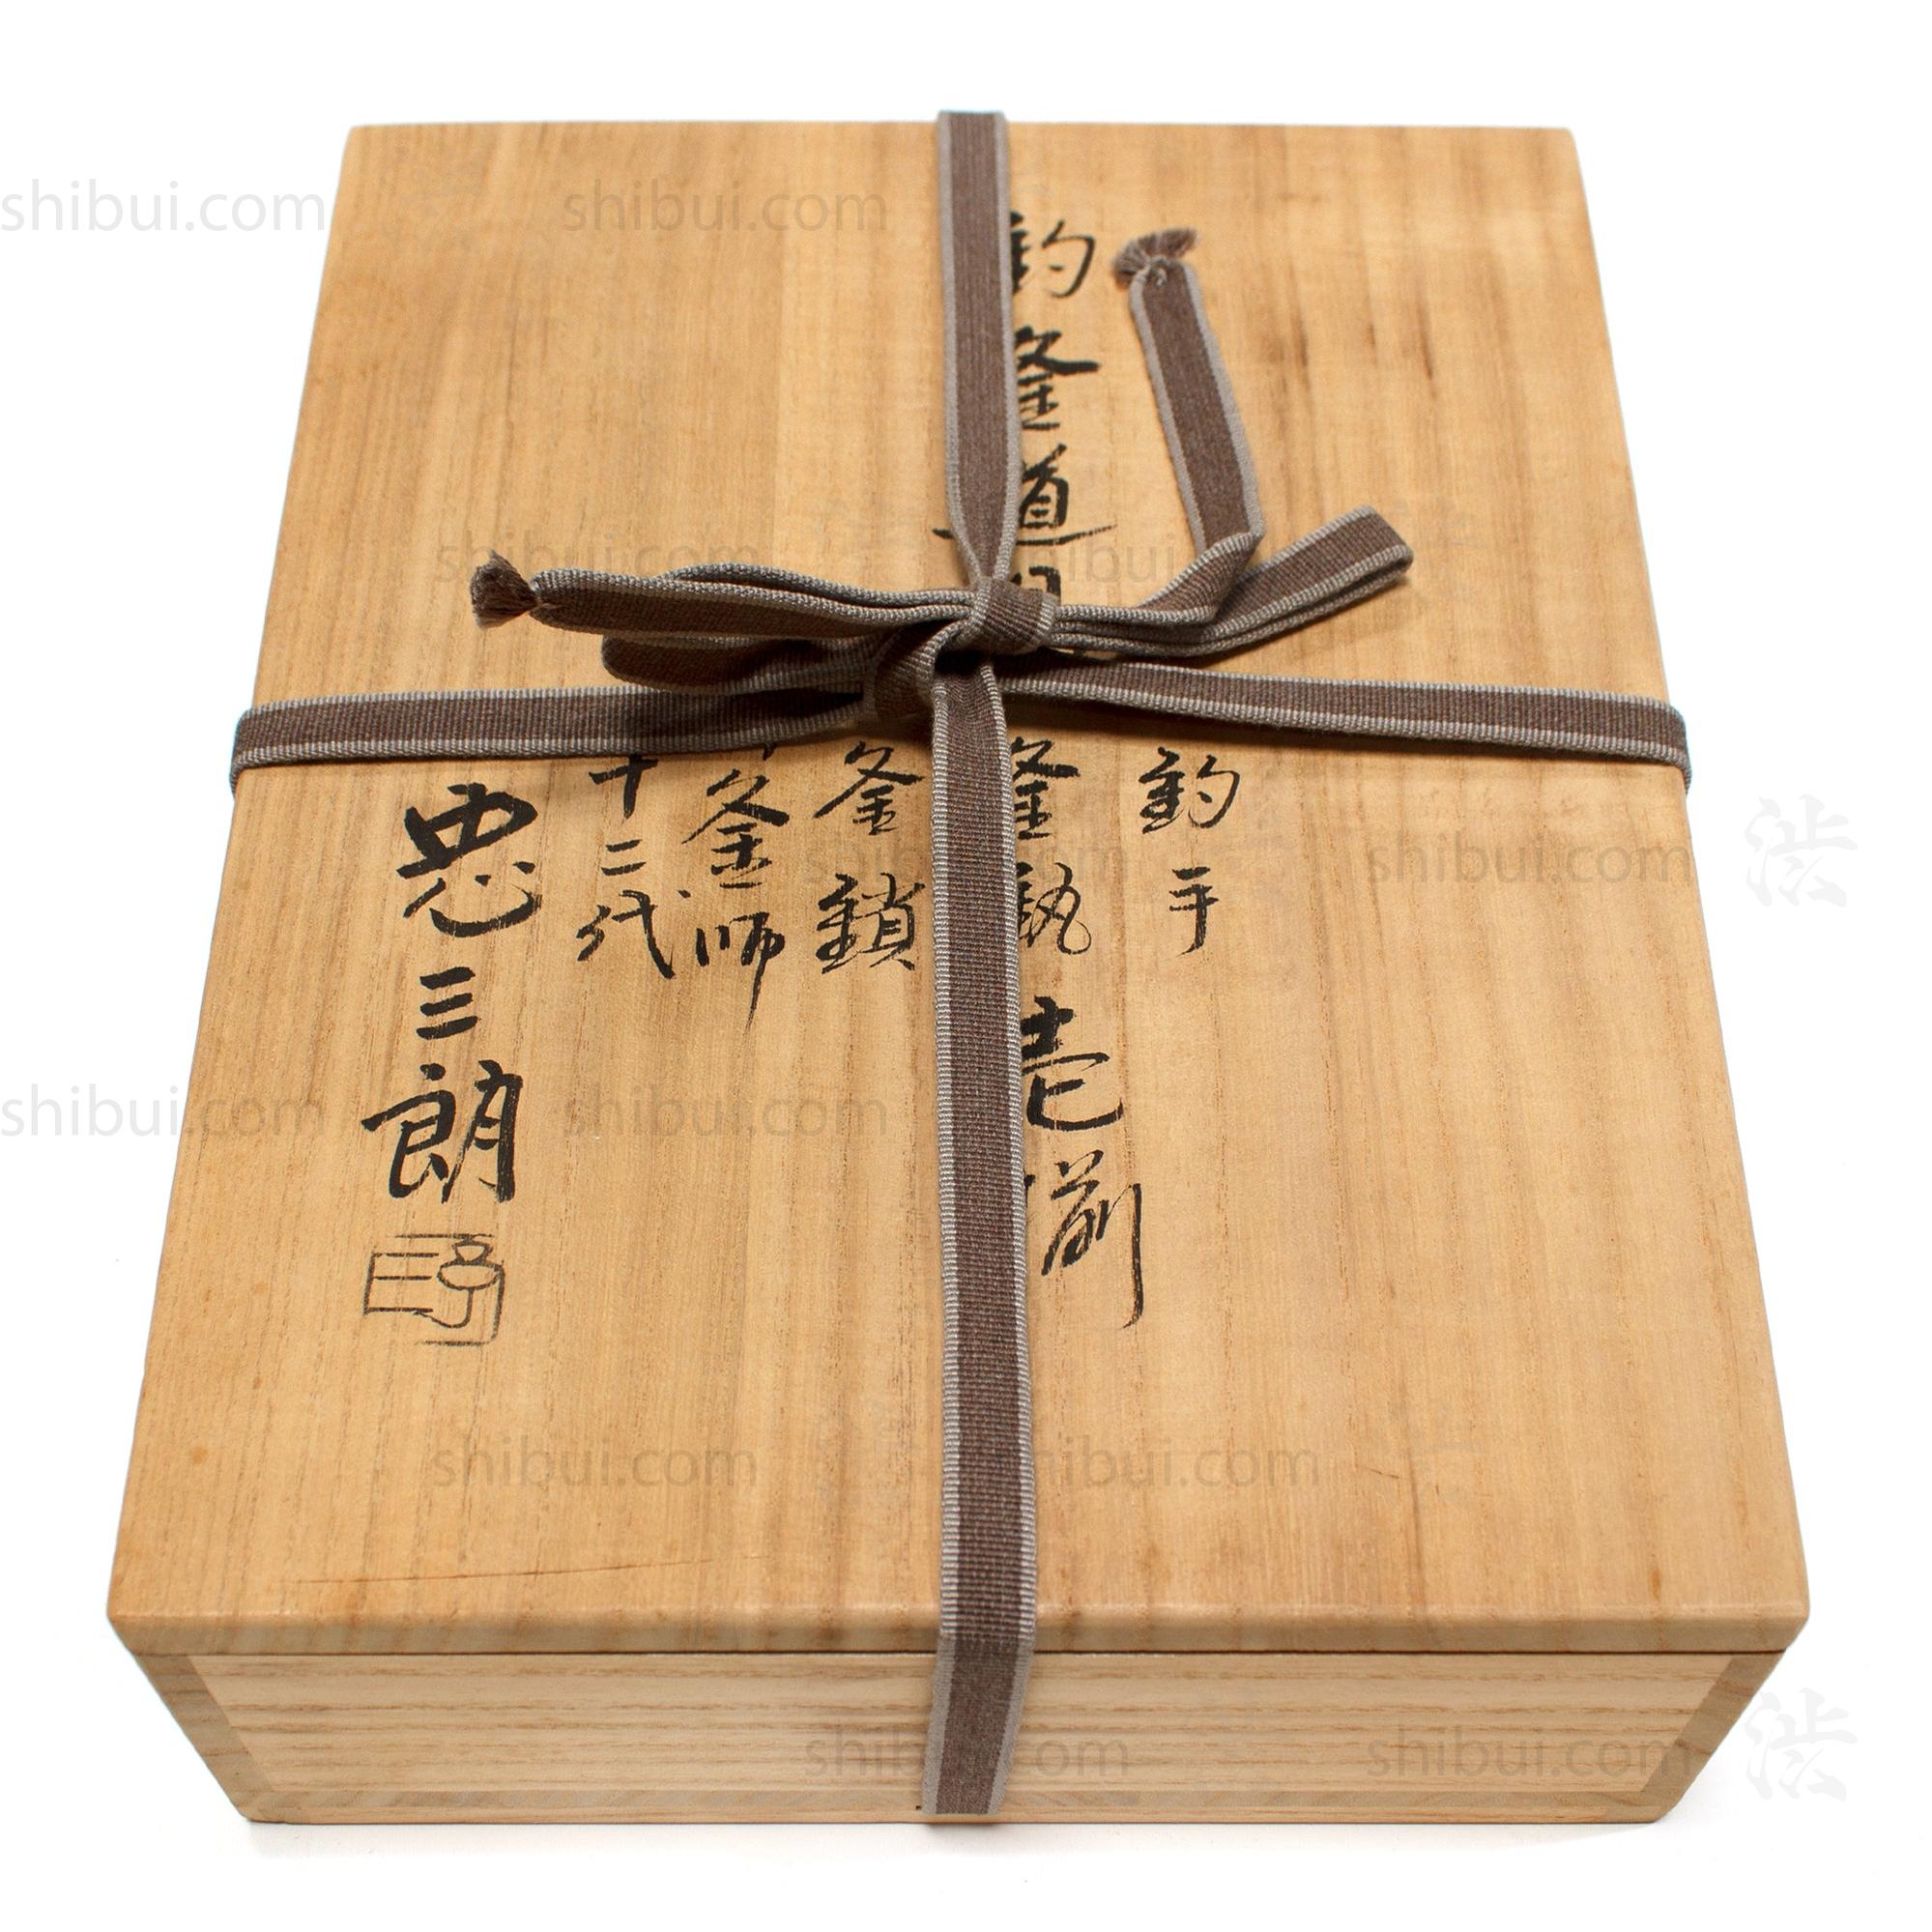 釣釜道具
釣手
釜
壱揃
釜鎖
釜師
十二代
忠三朗
shibui.com
shibui.com
shibui.com
shibui.com
shibui.com
shibui.com
shibui.com
shibui.com
shibui.com
shibui.com
shibui.com
shibui.com
渋
渋